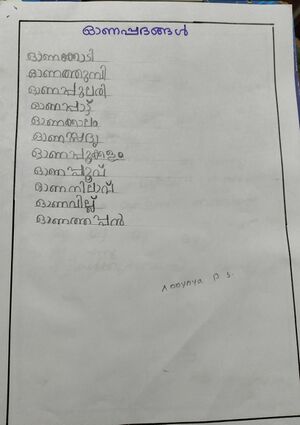 ഓണപ്പദങ്ങൾ
ഓണക്കോടി
ഓണത്തുമ്പി
ഓണപ്പുലരി
ഓണപ്പാട്ട്
ഓണക്കാലം
ഓണസദ്യ
ഓണപ്പൂക്കളം
ഓണപ്പൂവ്
ഓണനിലാവ്
ഓണവില്ല്
ഓണത്തപ്പൻ